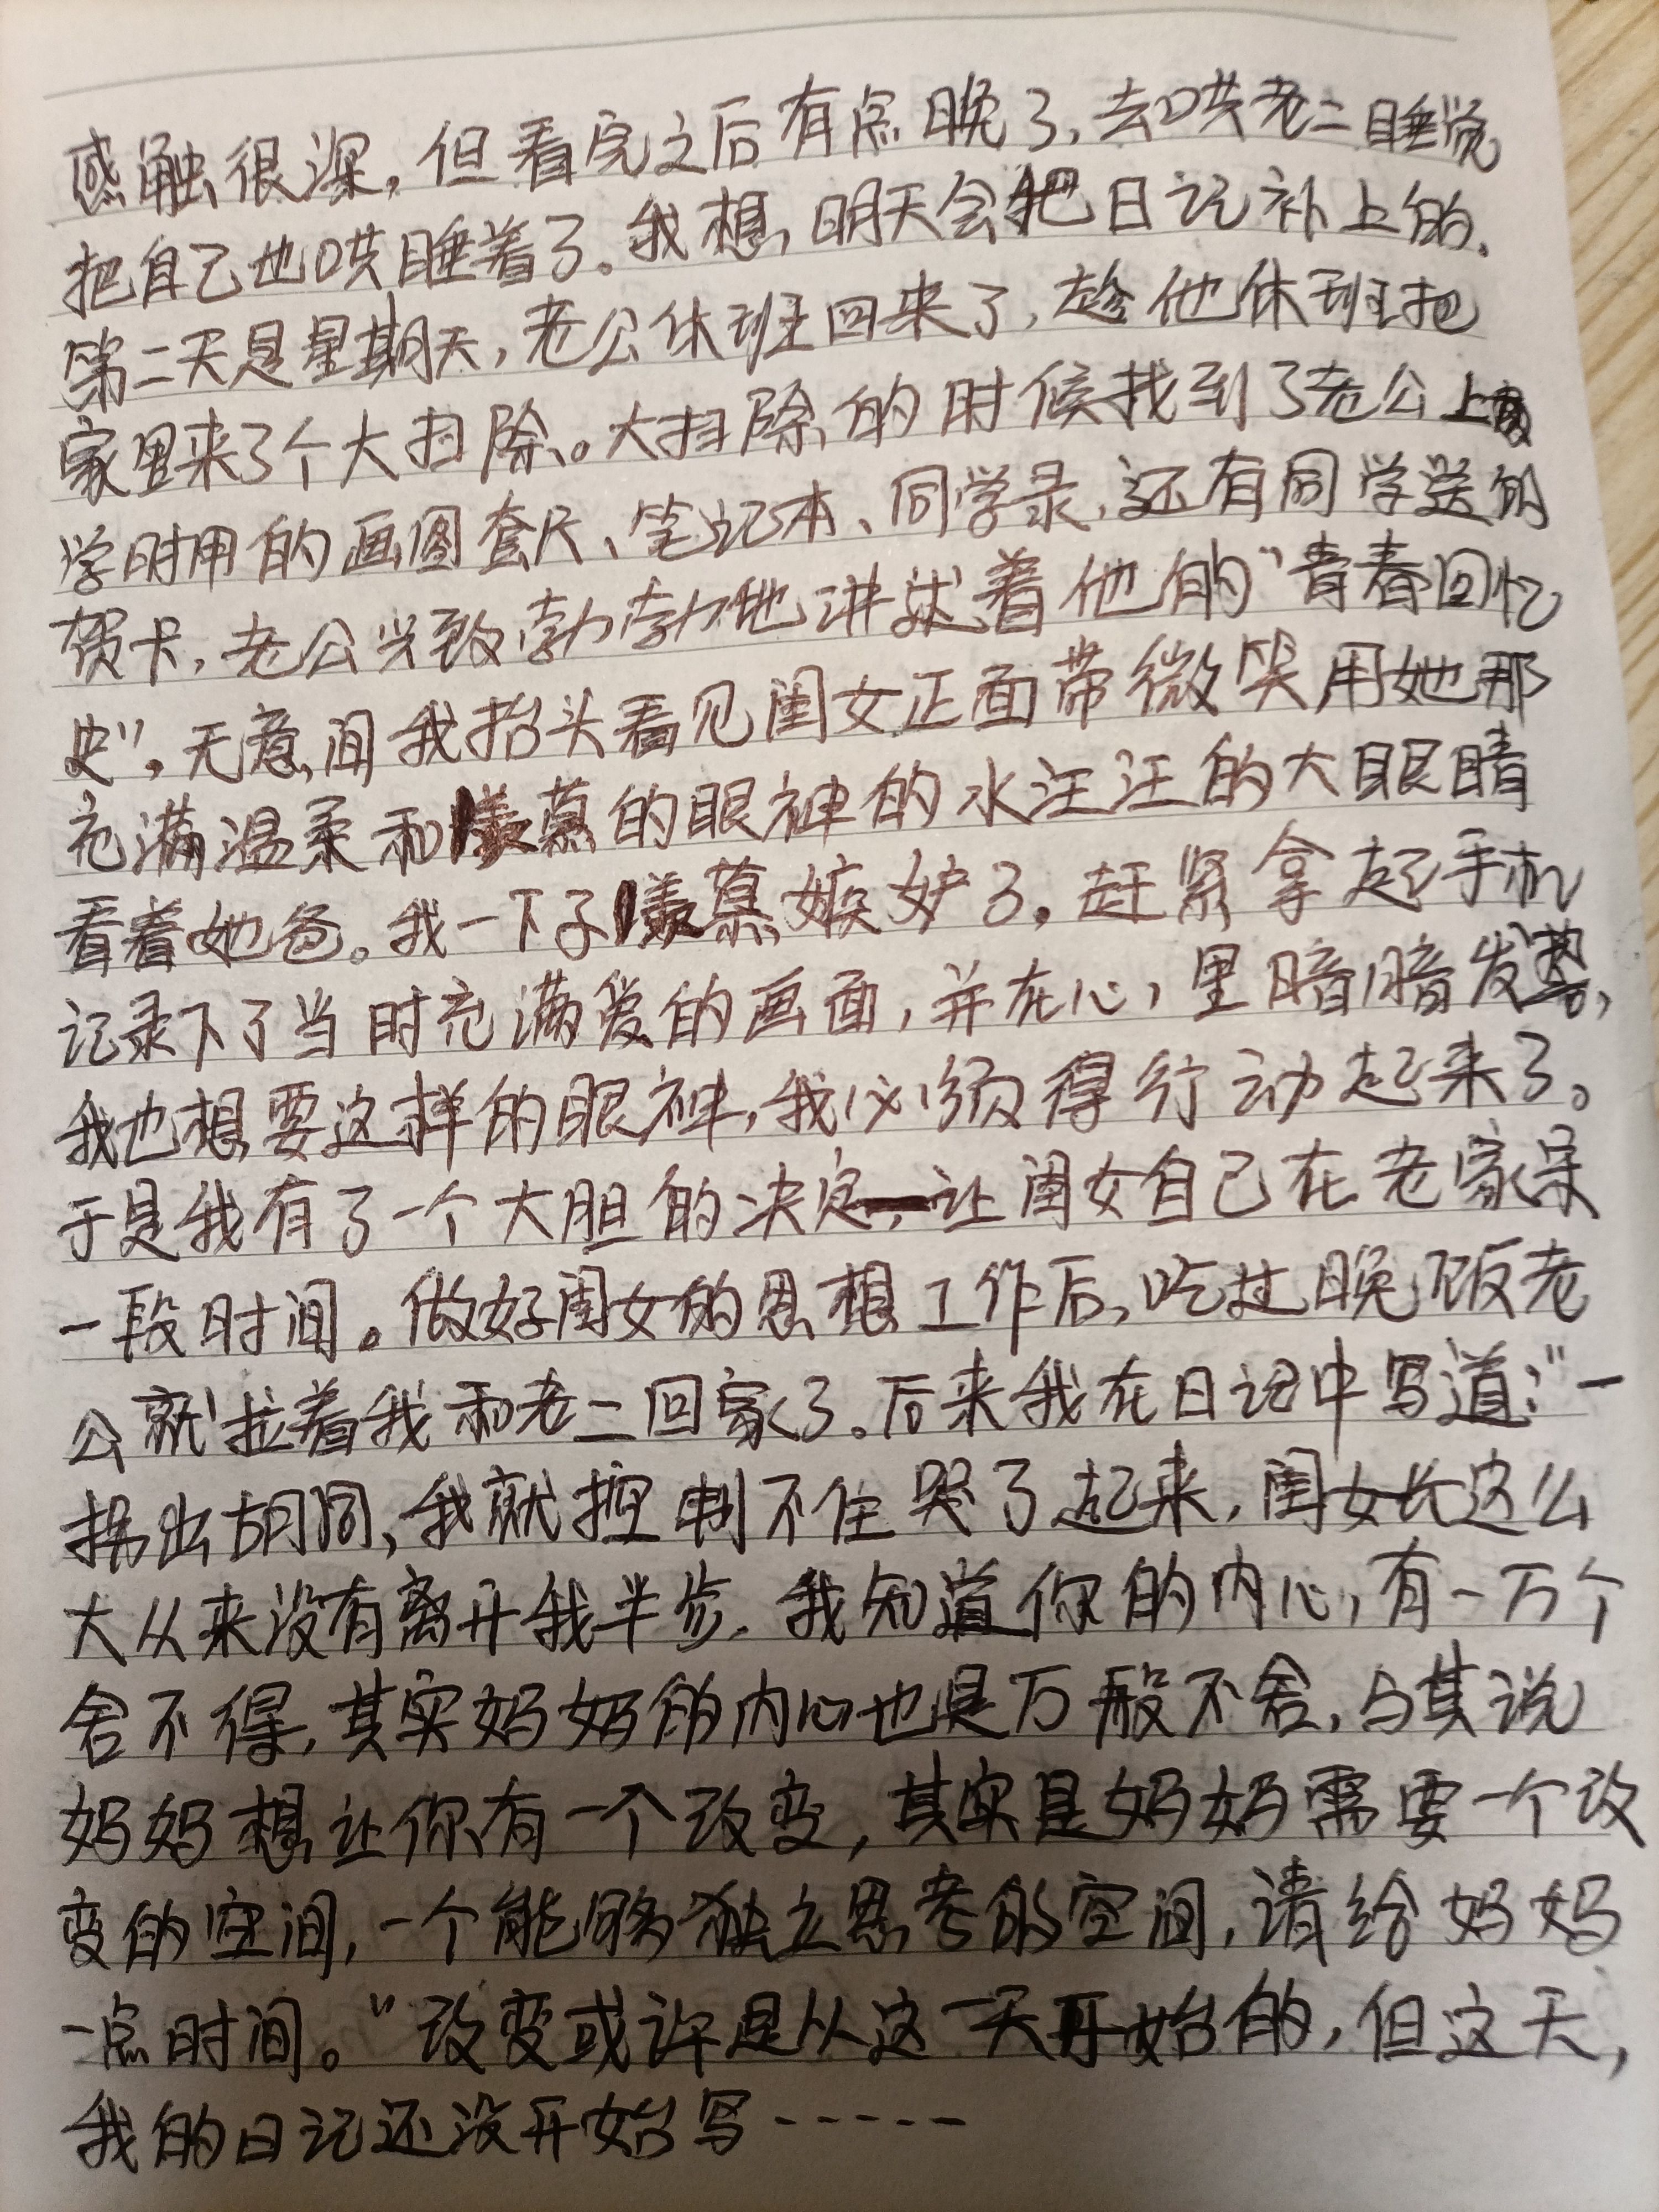 感触很深，但看完之后有点晚了，去哄老二睡觉
把自己也哄睡着了。我想，明天会把日记补上的。
第二天是星期天，老公休班回来了，趁他休班把
家里来了个大扫除。大扫除的时候找到了老公上
学时用的画图套尺、笔记本、同学录，还有同学送的
贺卡，老公兴致勃勃地讲述着他的“青春回忆
史”，无意间我抬头看见闺女正面带微笑用她那
充满温柔和羡慕的眼神的水汪汪的大眼睛
看着她爸。我一下子羡慕嫉妒了。赶紧拿起手机
记录下了当时充满爱的画面，并在心里暗暗发誓，
我也想要这样的眼神，我必须得行动起来了。
于是我有了一个大胆的决定，让闺女自己在老家呆
一段时间。做好闺女的思想工作后，吃过晚饭老
公就拉着我和老二回家了。后来我在日记中写道：“一
拐出胡同，我就控制不住哭了起来，闺女长这么
大从来没有离开我半步。我知道你的内心，有一万个
舍不得，其实妈妈的内心也是万般不舍，与其说
妈妈想让你有一个改变，其实是妈妈需要一个改
变的空间，一个能够独立思考的空间，请给妈妈
一点时间。”改变或许是从这一天开始的，但这天，
我的日记还没开始写······